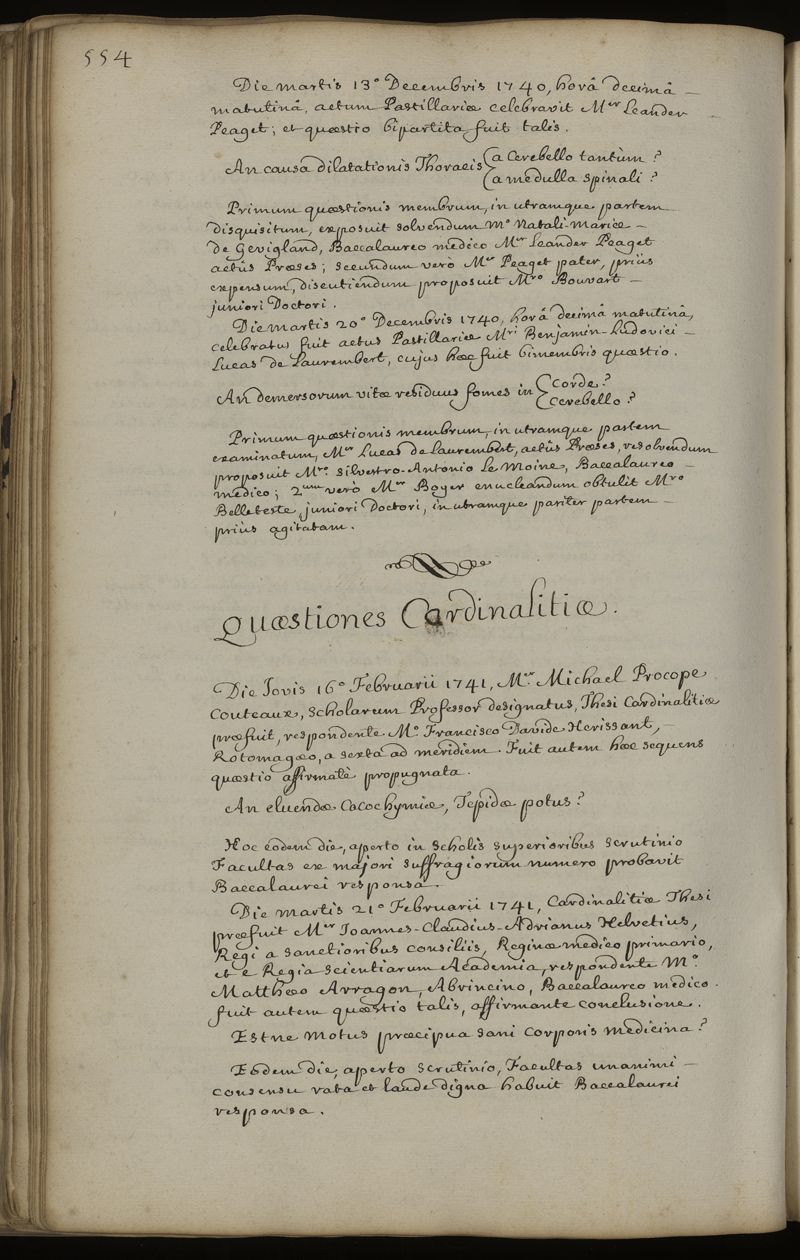 554
Die martis 13° Decembris 1740, horâ decimâ
matutinâ, actum Pastillariæ celebravit Mer Leander
Peaget; et quæstio bipartita fuit talis.
An causa dilatationis Thoracis { a Cerebello tantùm?
{ a medulla spinali?
Primum quæstionis membrum, in utramque partem
disquisitum, exposuit solvendum M° Natali-Mariæ
de Gevigland, Baccalaureo medico Mer Leander Peaget
actûs Præses; secundum verò Mer Peaget pater, priùs
expensum, discutiendum proposuit Mro Bouvart
juniori Doctori.
Die martis 20° Decembris 1740, horâ decimâ matutinâ,
celebratus fuit actus Pastillariæ Mri Benjamin-Ludovici
Lucas de Laurembert, cujus hæc fuit bimembris quæstio.
An demersorum vitæ residuus fomes in { Corde?
{ Cerebello?
Primum quæstionis membrum, in utramque partem
examinatum, Mer Lucas de Laurembert, actûs Præses, resolvendum
proposuit Mro. Silvestro-Antonio Le Moine, Baccalaureo
medico; 2um verò Mer Boyer enucleandum obtulit Mro
Belleteste, juniori Doctori, in utramque pariter partem
priùs agitatam.
Quæstiones Cardinalitiæ.
Die Jovis 16° Februarii 1741, Mer Michael Procope
Couteaux, Scholarum Professor designatus, Thesi Cardinalitiæ
præfuit, respondente M° Francisco Davide Herissant,
Rotomagæo, a sexta ad meridiem. Fuit autem hæc sequens
quæstio affirmatè propugnata.
An eluendæ Cacochymiæ, Tepidæ potus?
Hoc eodem die, aperto in Scholis superioribus scrutinio
Facultas ex majori suffragiorum numero probavit
Baccalaurei responsa.
Die martis 21° Februarii 1741, Cardinalitiæ Thesi
præfuit Mer Joannes-Claudius-Adrianus Helvetius,
Regi a sanctioribus consiliis, Reginæ medico primario,
et e Regia scientiarum Academia, respondente M°.
Matthæo Arragon, Abrincino, Baccalaureo medico.
fuit autem quæstio talis, affirmante conclusione.
Estne Motus præcipua sani Corporis medicina?
Eodem die, aperto scrutinio, Facultas unanimi
consensu rata et laude digna habuit Baccalaurei
responsa.